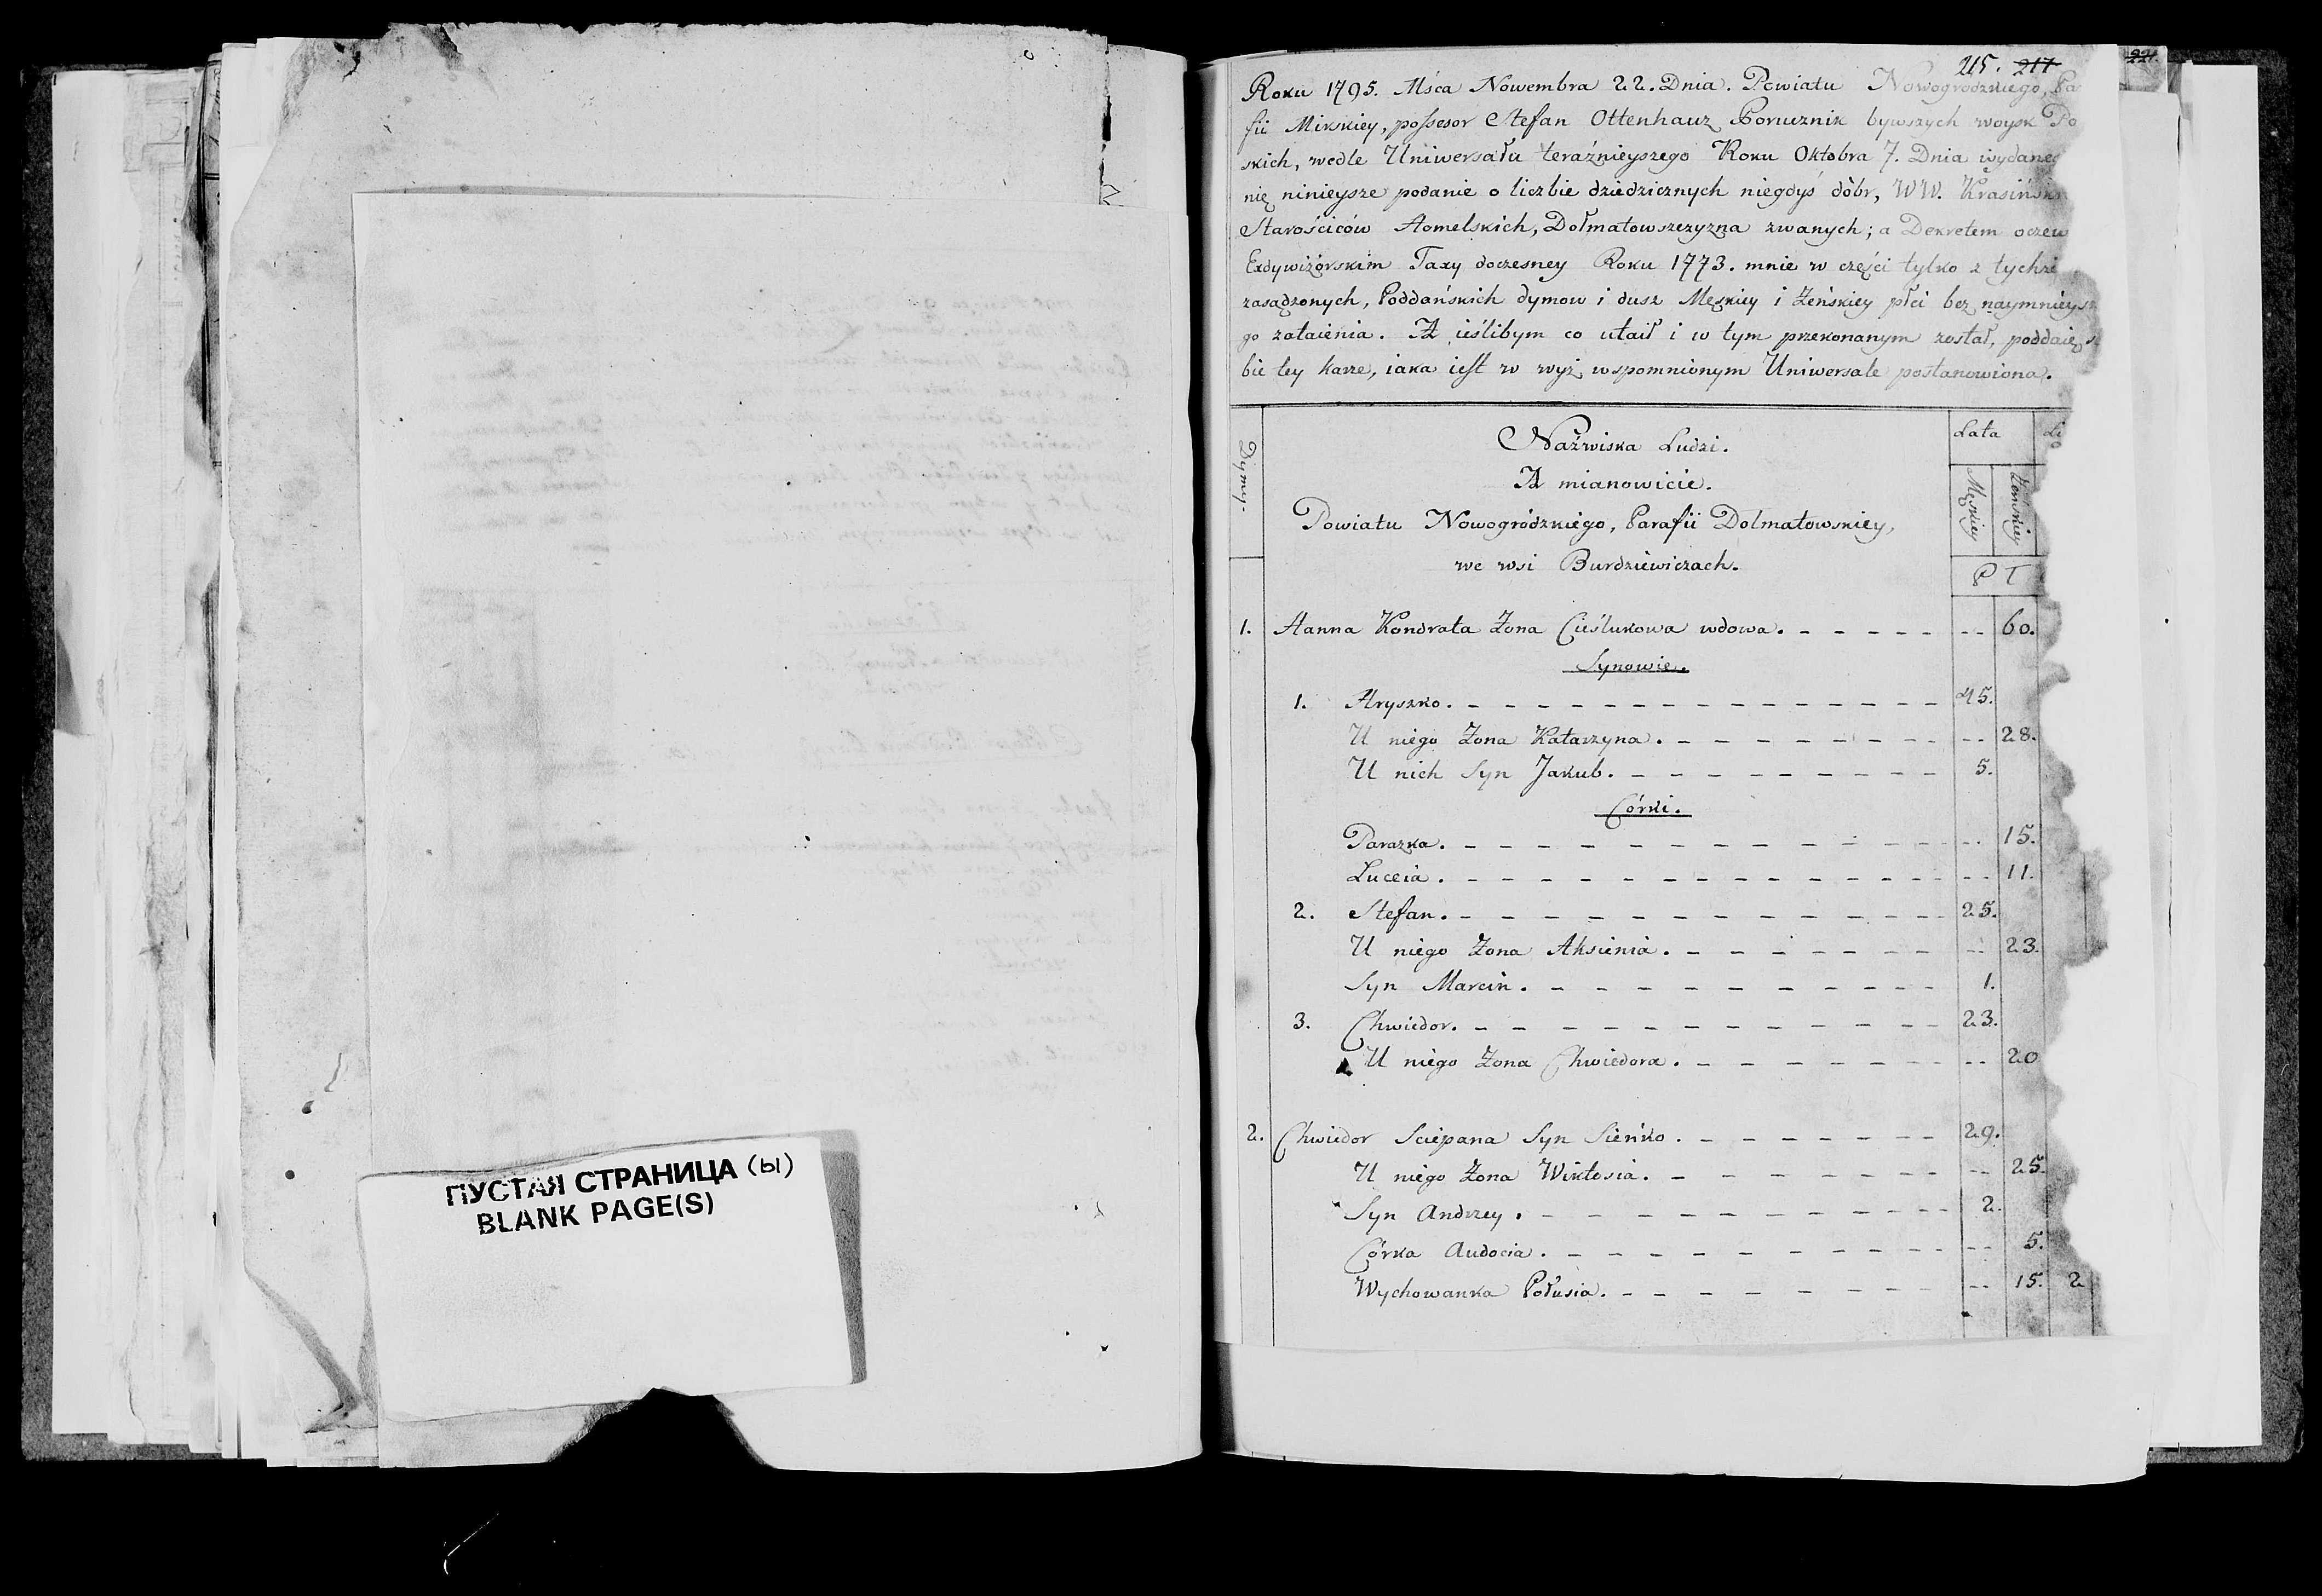 ПУСТАЯ СТРАНИЦА (ы)
BLANK PAGE(S)
215. 217
221
Roku 1795. Mśca Nowembra 22. Dnia. Powiatu Nowogrodzkiego, Pa
fii Mirskiey, possesor Stefan Ottenhauz Porucznik bywszych woysk Po
skich, wedle Uniwersału teraźnieyszego Roku Oktobra 7. Dnia wydaneg
nię ninieysze podanie o liczbie dziedzicznych niegdyś dóbr, WW. Krasińsk
Starościców Homelskich, Dołmatowszczyzna zwanych; a Dekretem oczew
Exdywizorskim Taxy doczesney Roku 1773. mnie w części tylko z tychże
zasądzonych, Poddańskich dymow i dusz Męskiey i Żeńskiey płci bez naymnieysz
go zataienia. A ieślibym co utaił i w tym przekonanym został, poddaię s
bie tey karze, iaka iest w wyż wspomnionym Uniwersale postanowiona.
Dymy.
Nazwiska Ludzi.
A mianowicie.
Powiatu Nowogródzkiego, Parafii Dolmatowskiey,
we wsi Burdziewiczach.
Lata
Li
Męskiey
Żenskiey
P T
1. Hanna Kondrata Żona Cieślukowa wdowa. - - - - - -- 60.
Synowie.
1. Hryszko. - - - - - 45.
U niego Żona Katarzyna. - - - - - -- 28.
U nich Syn Jakub. - - - - - 5.
Córki.
Parazka. - - - - - -- 15.
Luceia. - - - - - -- 11.
2. Stefan. - - - - - 25.
U niego Żona Aksienia. - - - - - -- 23.
Syn Marcin. - - - - - 1.
3. Chwiedor. - - - - - 23.
U niego Żona Chwiedora. - - - - - -- 20
2. Chwiedor Sciepana Syn Sieńko. - - - - - 29.
U niego Żona Wiktosia. - - - - - -- 25.
Syn Andrzey. - - - - - 2.
Córka Audocia. - - - - - -- 5.
Wychowanka Połusia. - - - - - -- 15. 2